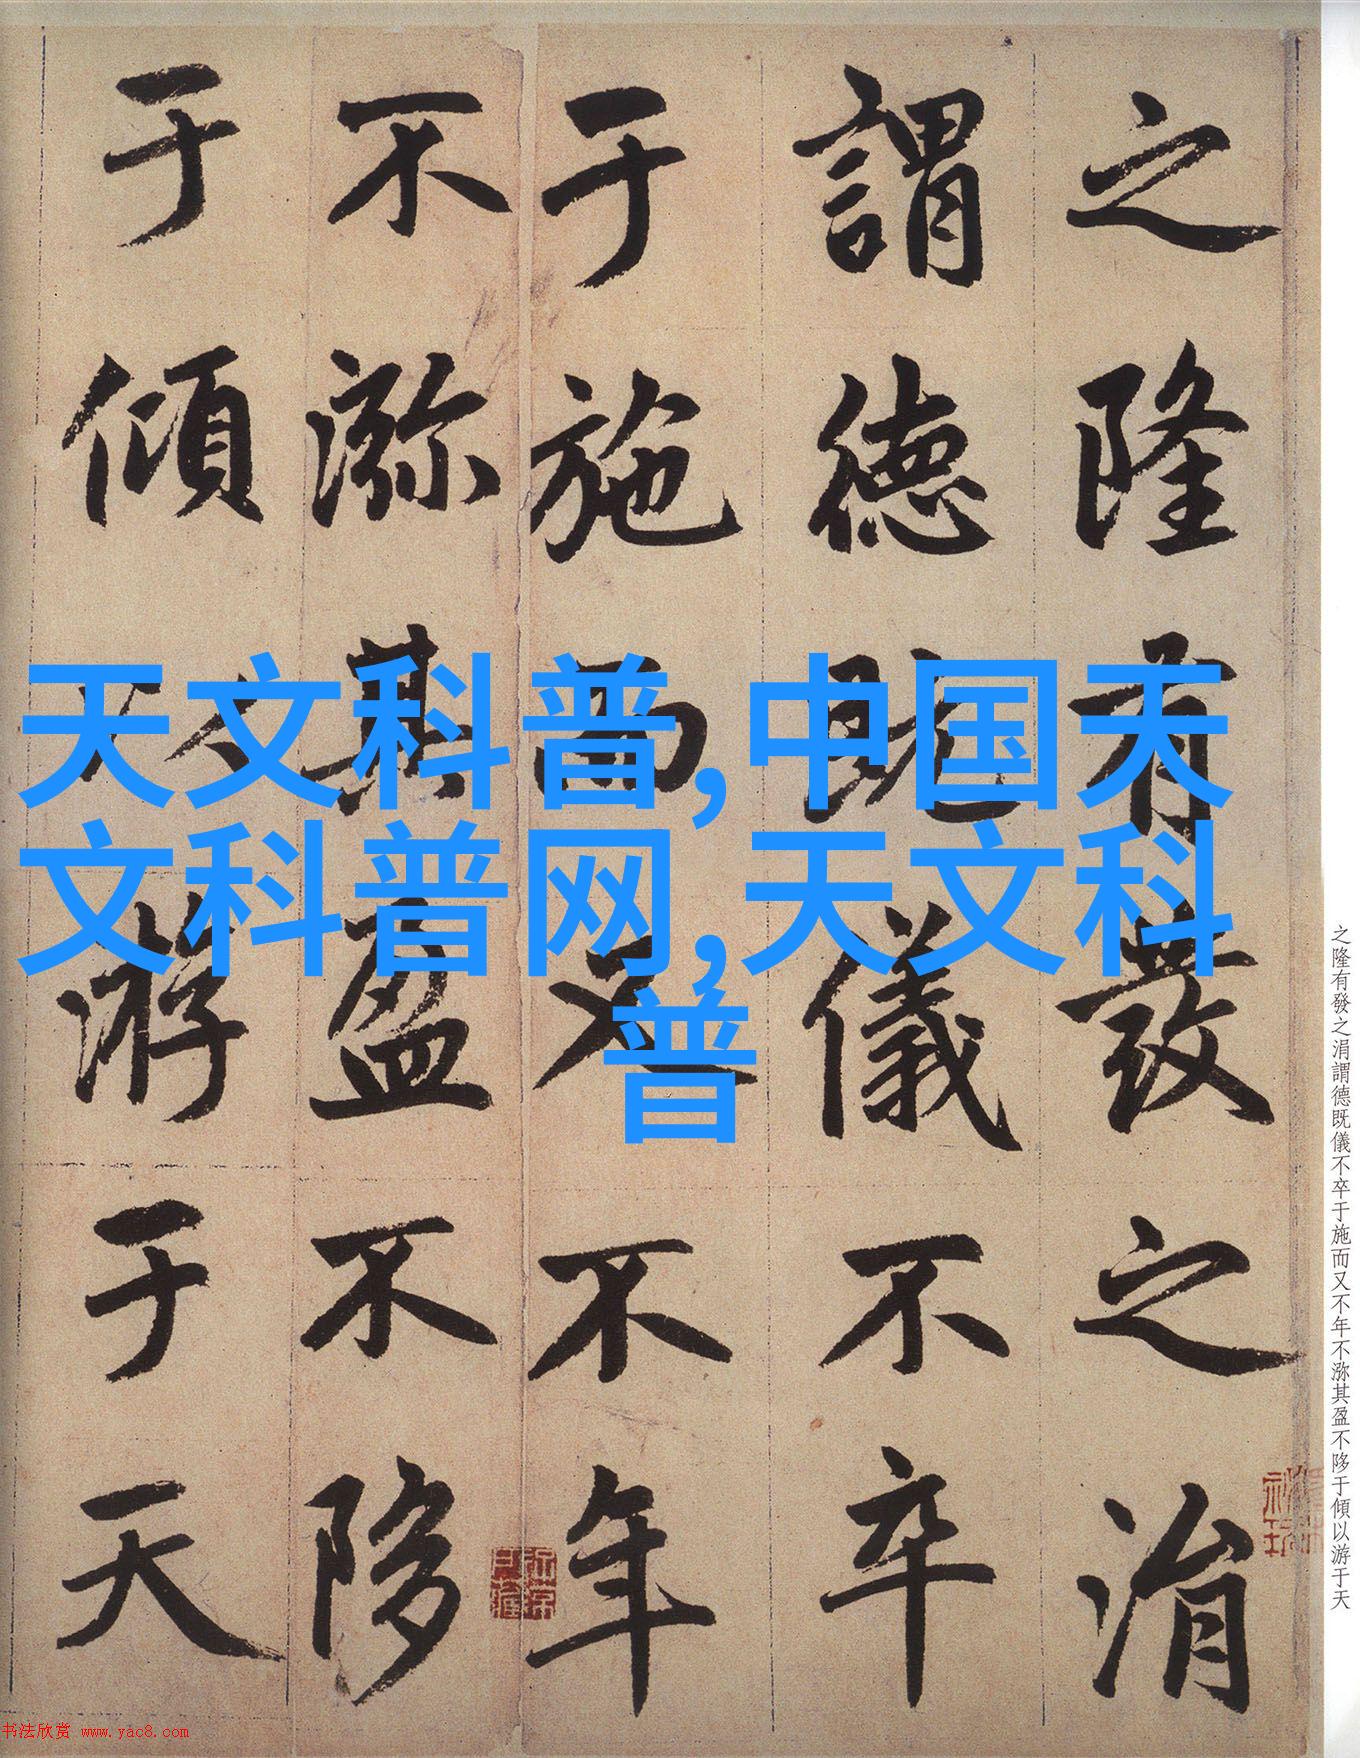 之隆有發之涓
謂德既儀不卒
于施而又不年
不沵其盈不陊
于傾以游于天
天文科普,中国天
文科普网,天文科
普
之隆有發之涓謂德既儀不卒于施而又不年不沵其盈不陊于傾以游于天
书法欣赏 www.yac8.com